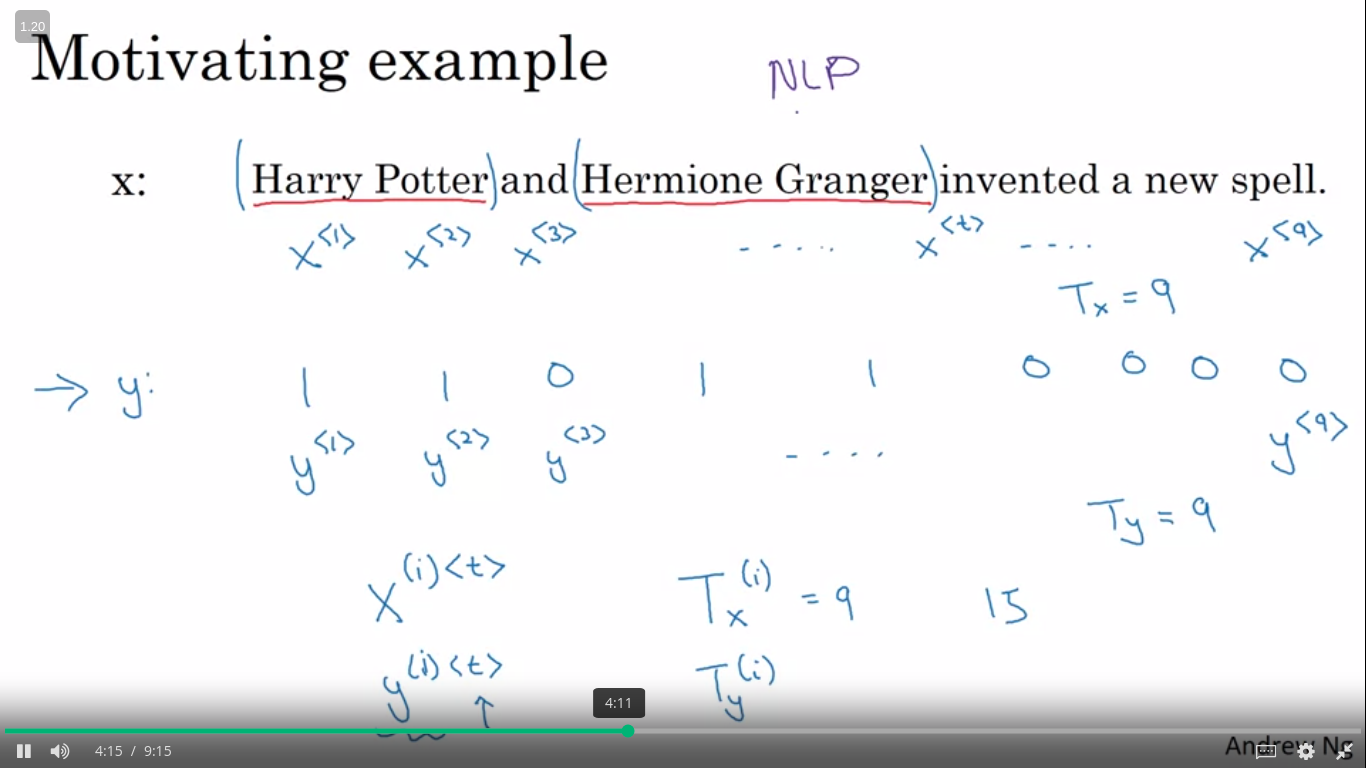 1.20
Motivating example
NLP
x: (Harry Potter) and (Hermione Granger) invented a new spell.
x<1> x<2> x<3> - .... x<t> - .... x<9>
Tx = 9
→ y: 1 1 0 1 1 0 0 0 0
y<1> y<2> y<3> - .... y<9>
Ty = 9
X(i)<t> Tx(i) = 9 15
y(i)<t> Ty(i)
↑
4:11
4:15 / 9:15
Andrew Ng